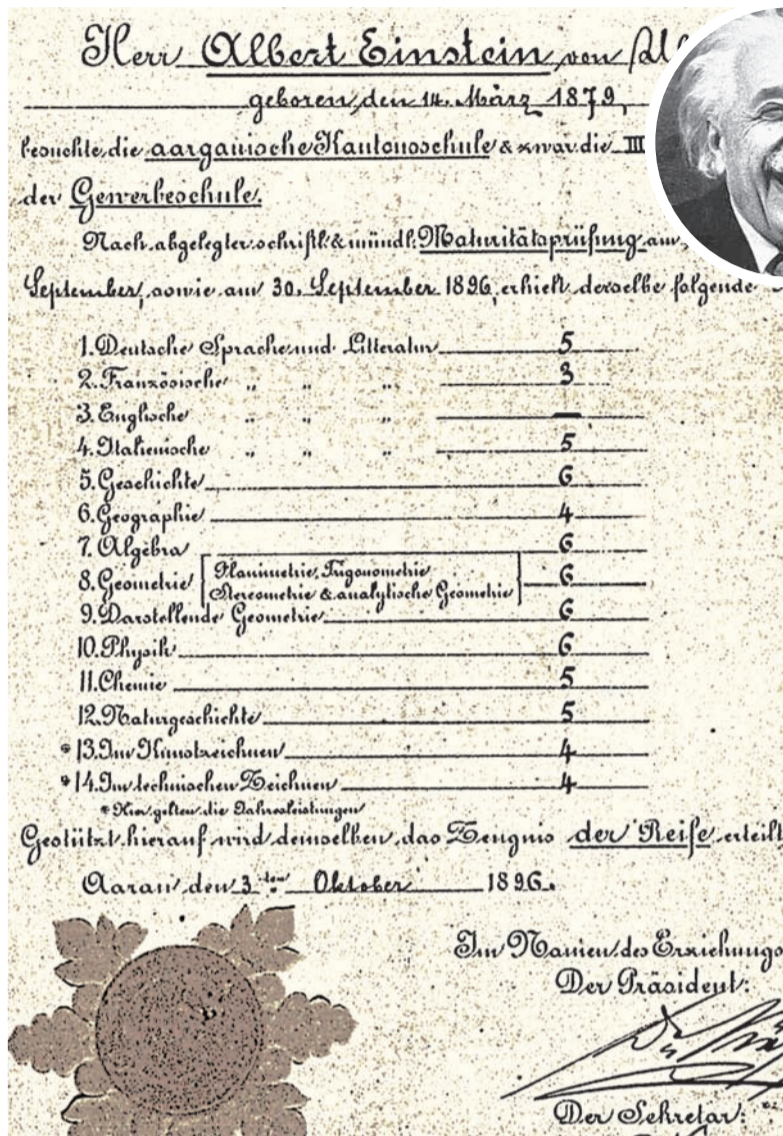 Herr Albert Einstein von Ul
geboren den 14. März 1879,
besuchte die aargauische Kantonsschule & zwar die III
der Gewerbeschule.
Nach abgelegter schriftl. & mündl. Maturitätsprüfung am
September, sowie am 30. September 1896, erhielt derselbe folgende
1. Deutsche Sprache und Litteratur 5
2. Französische „ „ „ 3
3. Englische „ „ „ —
4. Italienische „ „ „ 5
5. Geschichte 6
6. Geographie 4
7. Algebra 6
8. Geometrie [Planimetrie, Trigonometrie 6
Stereometrie & analytische Geometrie]
9. Darstellende Geometrie 6
10. Physik 6
11. Chemie 5
12. Naturgeschichte 5
* 13. Im Kunstzeichnen 4
* 14. Im technischen Zeichnen 4
* Hier gelten die Jahresleistungen
Gestützt hierauf wird demselben das Zeugnis der Reife erteilt
Aarau den 3ten Oktober 1896.
Im Namen des Erziehungs
Der Präsident:
Der Sekretär: